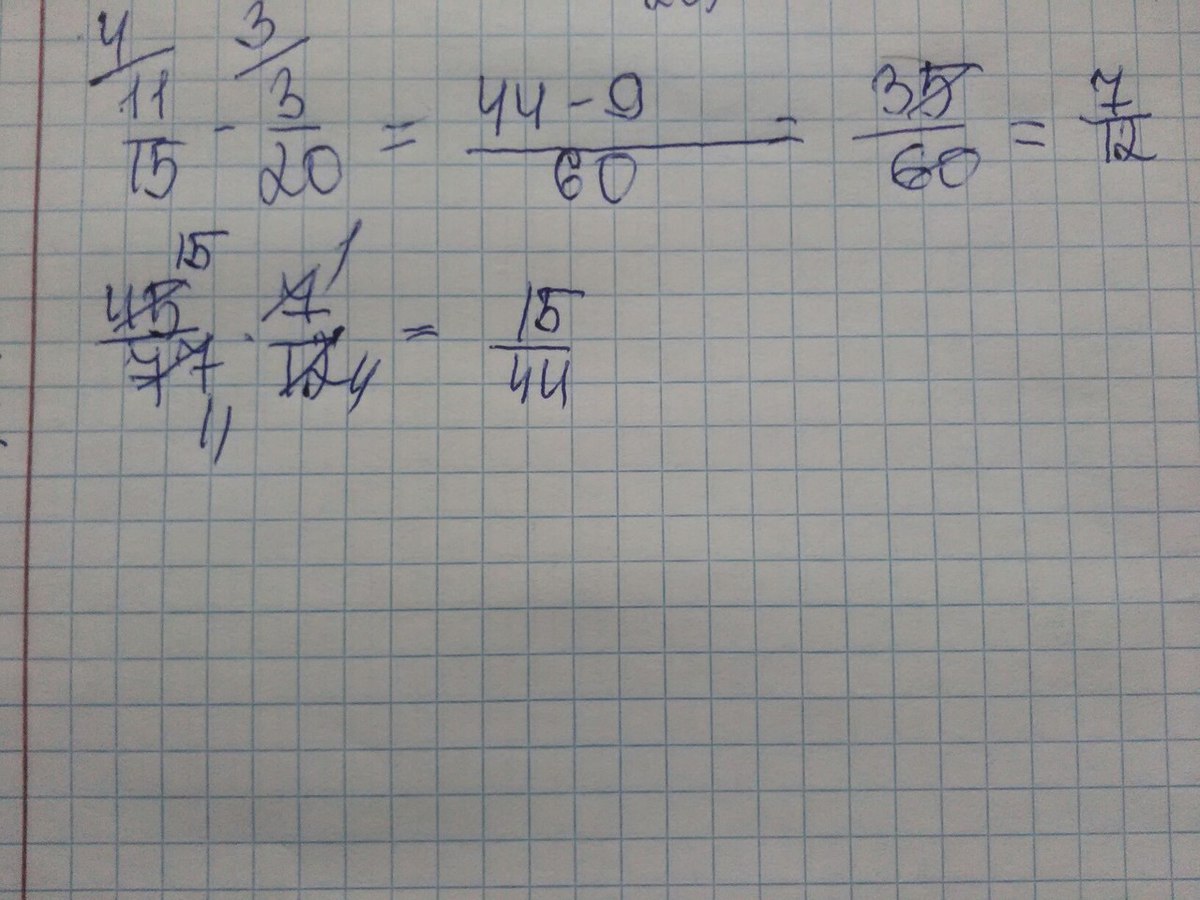 4/ 3/
11/15 - 3/20 = 44-9/60 = 35/60 = 7/12
15 1
45/77 · 7/12 4 = 15/44
11